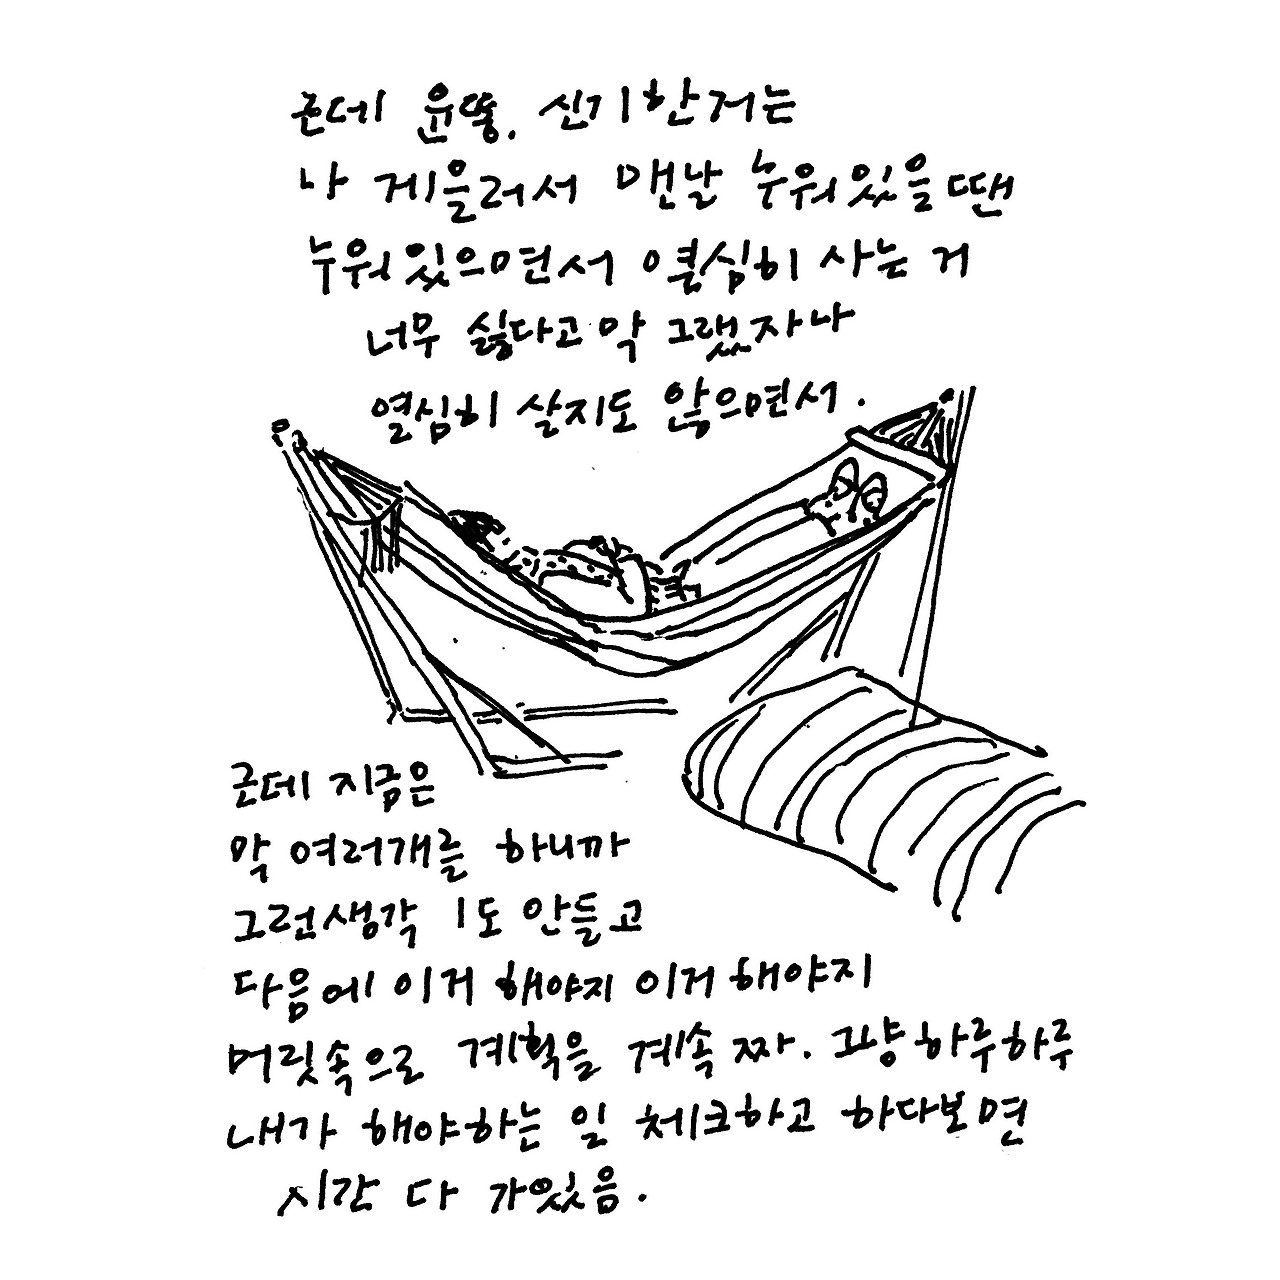 근데 윤뚱. 신기한거는
나 게을러서 맨날 누워있을땐
누워있으면서 열심히 사는 거
너무 싫다고 막 그랬자나
열심히 살지도 않으면서.
근데 지금은
막 여러개를 하니까
그런생각 1도 안들고
다음에 이거 해야지 이거 해야지
머릿속으로 계획을 계속 짜. 그냥 하루하루
내가 해야하는 일 체크하고 하다보면
시간 다 가있음.